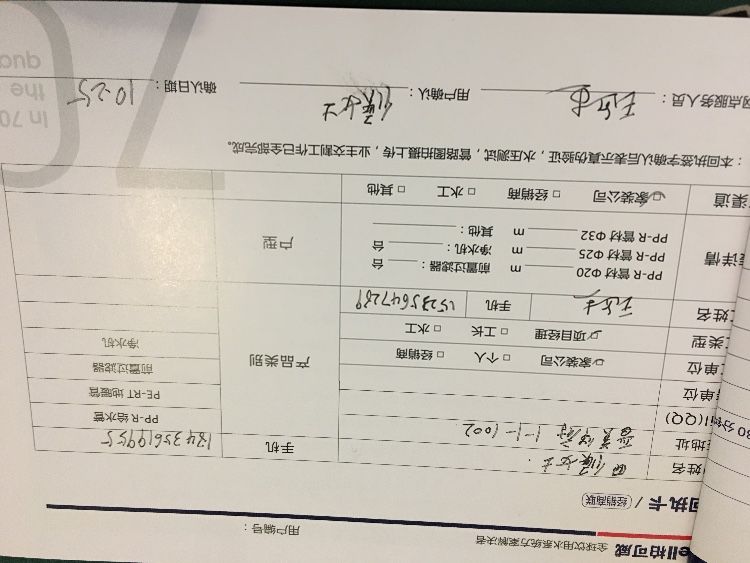 ell柏可威 全球饮用水系统方案解决者
回执卡 / 经销商联 用户编号：
姓名 女士 手机 13435619955
地址 1-1-1002 PP-R 给水管
(QQ) PE-RT 地暖管
单位 产品类别 前置过滤器
单位 家装公司 个人 经销商 净水机
类型 项目经理 工长 水工
姓名 手机 15235647289
详情 PP-R 管材 Φ20 m 前置过滤器： 台 户型
PP-R 管材 Φ25 m 净水机： 台
PP-R 管材 Φ32 m 其他：
渠道 家装公司 经销商 水工 其他
：本回执签字确认后表示真伪验证，水压测试，管路图拍摄上传，业主交割工作已全部完成。
网点服务人员： 用户确认： 女士 确认日期： 10-25
30分钟
In 70
the
quo